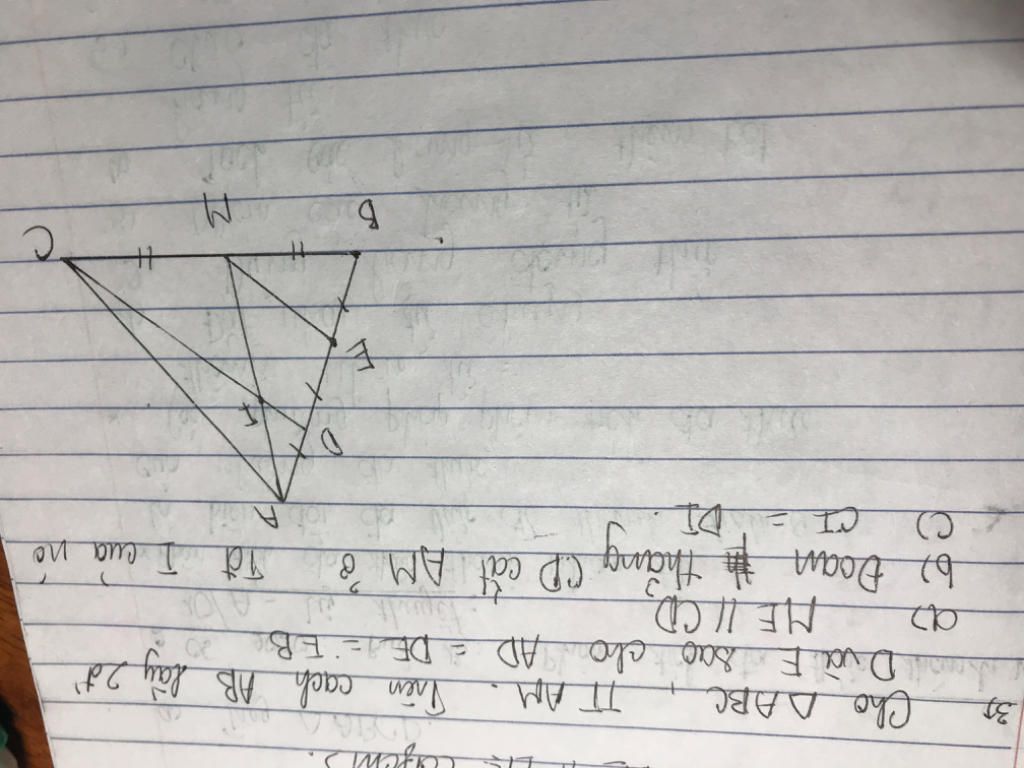 3)
Cho △ABC, TT AM. Trên cạch AB lấy 2đ'
D và E sao cho AD = DE = EB
a) ME // CD
b) Đoạn thẳng CD cắt AM ở Tđ I của nó
c) CI = DI.
A
D
I
E
B
M
C